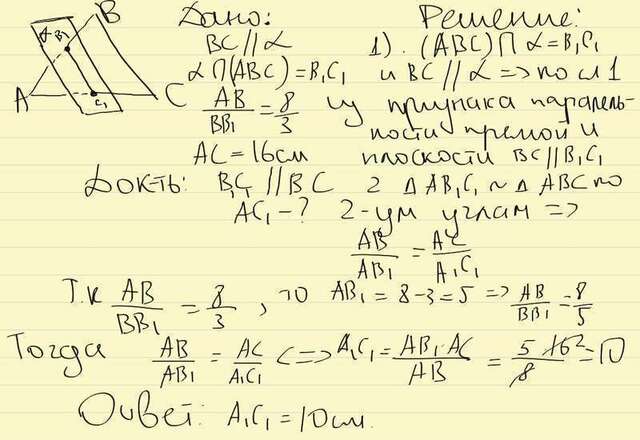 Дано:
BC // α
α ∩ (ABC) = B₁C₁
AB/BB₁ = 8/3
AC = 16 см
Док-ть: B₁C₁ // BC
AC₁ - ?
Решение:
1). (ABC) ∩ α = B₁C₁
и BC // α => по сл 1
из признака паралель-
ности прямой и
плоскости BC // B₁C₁
2 Δ AB₁C₁ ~ Δ ABC по
2-ум углам =>
AB/AB₁ = AC/A₁C₁
Т.к AB/BB₁ = 8/3, то AB₁ = 8-3=5 => AB/BB₁ = 8/5
Тогда AB/AB₁ = AC/A₁C₁ <=> A₁C₁ = AB₁·AC/AB = 5·16²/8 = 10
Ответ: A₁C₁ = 10см.
α
B
B₁
A
C₁
C